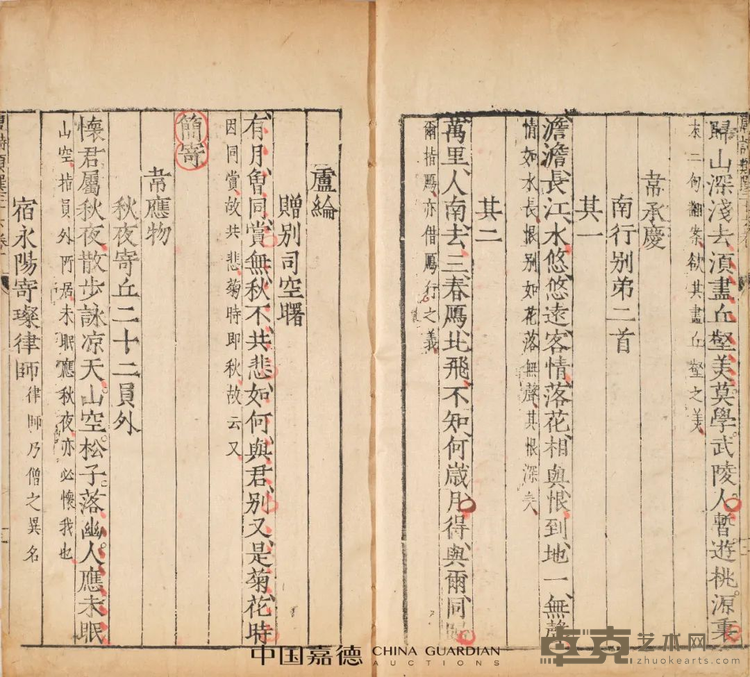 歸山深淺去須盡丘壑美莫學武陵人暫遊桃源裏
末二句翻案欲其盡丘壑之美
韋承慶
南行別弟二首
其一
澹澹長江水悠悠遠客情落花相與恨到地一無聲
情如水長恨別如花落無聲其恨深矣
其二
萬里人南去三春鴈北飛不知何歲月得與爾同
爾指鴈亦借鴈行之義
盧綸
贈別司空曙
有月曾同賞無秋不共悲如何與君別又是菊花時
因同賞故共悲菊時即秋故云又
簡寄
韋應物
秋夜寄丘二十二員外
懷君屬秋夜散步詠凉天山空松子落幽人應未眠
山空指員外所居未眠應秋夜亦必懷我也
宿永陽寄璨律師 律師乃僧之異名
中国嘉德 CHINA GUARDIAN
AUCTIONS
卓克艺术网
zhuokearts.com